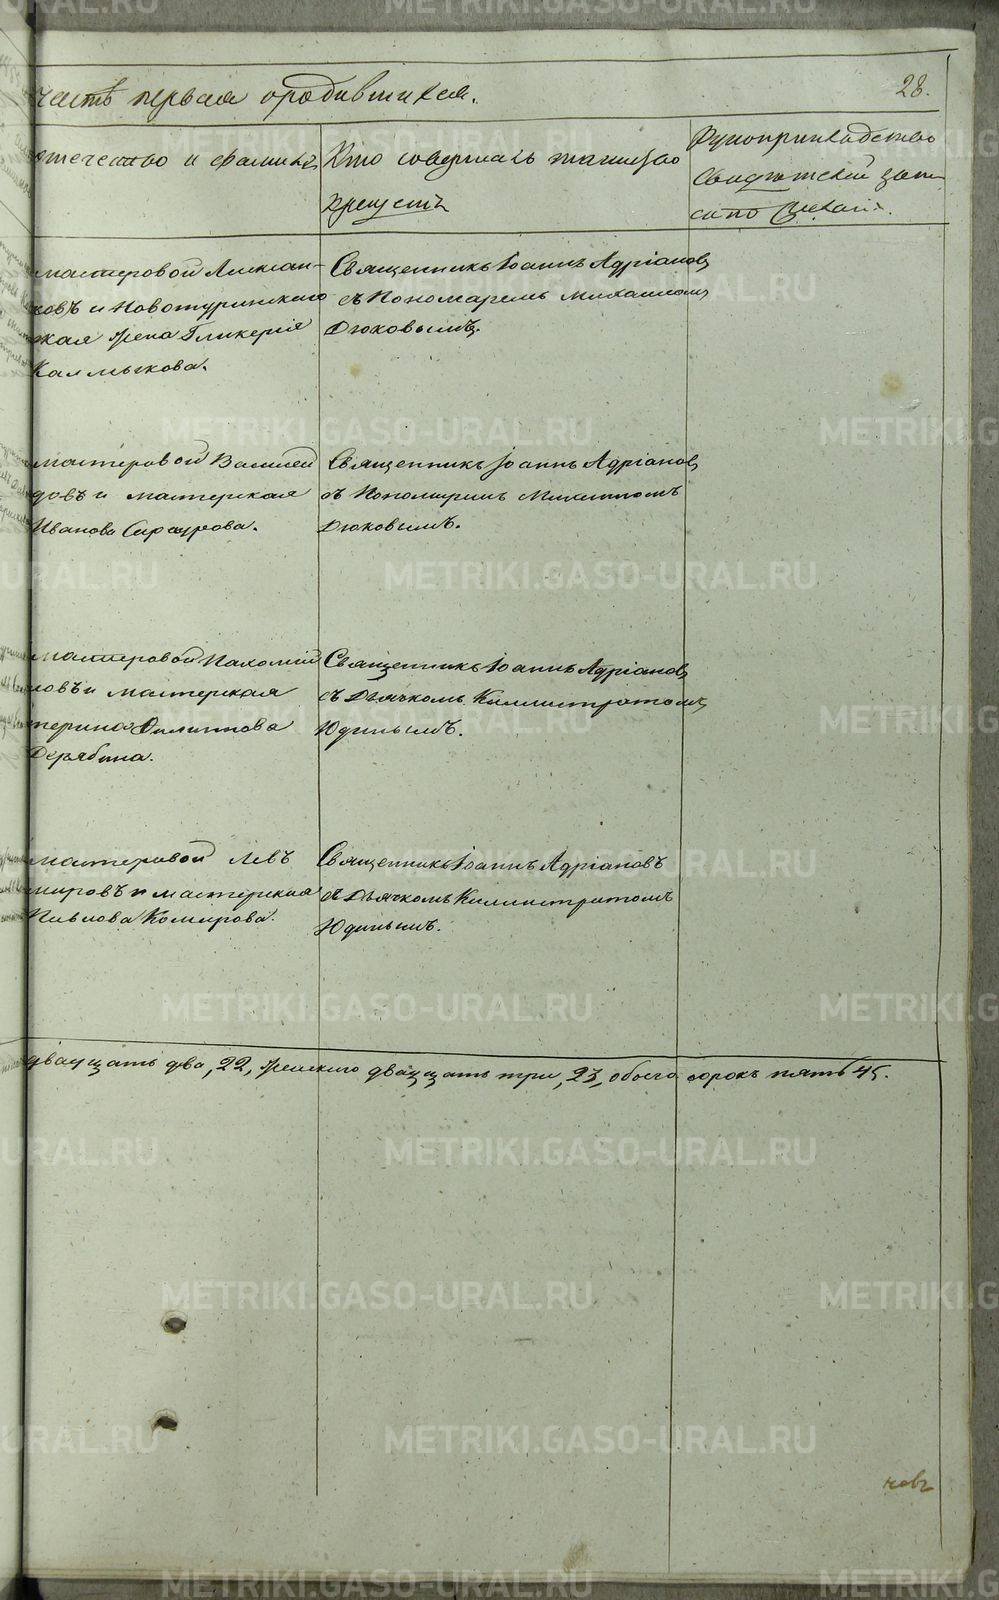 часть первая о родившихся.
28.
отечество и фамилия
Кто совершалъ таинство
крещенія
Рукоприкладство
свидѣтелей запи
си по желанію.
мастеровой Алексан-
ковъ и Новотуринскаго
ская жена Гликерія
Калмыкова.
Священникъ Іоаннъ Адріановъ
съ Пономаремъ Михаиломъ
Дюковымъ.
мастеровой Василей
довъ и мастерская
Иванова
Священникъ Іоаннъ Адріановъ
съ Пономаремъ Михаиломъ
Дюковымъ.
мастеровой Пахомій
ловъ и мастерская
терина Филиппова
Дерябина.
Священникъ Іоаннъ Адріановъ
съ Дьячкомъ Каллистратомъ
Юдинымъ.
мастеровой Левъ
мировъ и мастерская
Павлова Комирова.
Священникъ Іоаннъ Адріановъ
съ Дьячкомъ Каллистратомъ
Юдинымъ.
двадцать два, 22, женскаго двадцать три, 23, обоего сорокъ пять 45.
METRIKI.GASO-URAL.RU